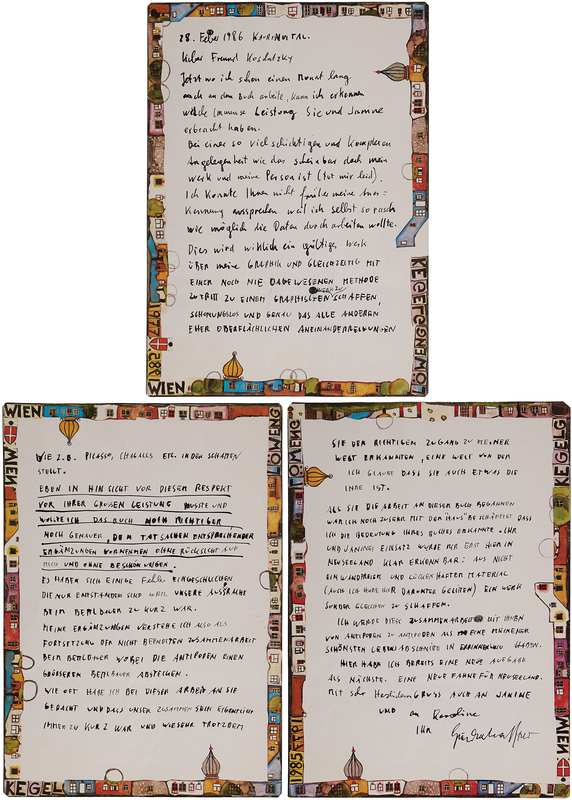 28. Feber 1986 KAURINUITAL.
Lieber Freund Koschatzky
Jetzt wo ich schon einen Monat lang
auch an dem Buch arbeite, kann ich erkennen
welche immense Leistung Sie und Janine
erbracht haben.
Bei einer so vielschichtigen und komplexen
Angelegenheit wie das scheinbar doch mein
werk und meine Person ist (tut mir leid).
Ich konnte Ihnen nicht früher meine Aner=
kennung aussprechen weil ich selbst so rasch
wie möglich die Daten durch arbeiten wollte.
Dies wird wirklich ein gültiges werk
ÜBER MEINE GRAPHIK UND GLEICHZEITIG MIT
EINER NOCH NIE DAGEWESENEN METHODE
ZUTRITT ZU EINEM GRAPHISCHEN WERK ZU SCHAFFEN,
SCHONUNGSLOS UND GENAU DAS ALLE ANDEREN
EHER OBERFLÄCHLICHEN ANEINANDERREIHUNGEN
KEGELGG
LÖWENG
1977
385
WIEN
WIEN
LÖWENG
WIEN
WIE Z.B. PICASSO, CHAGALLS ETC. IN DEN SCHATTEN
STELLT.
EBEN IN HINSICHT VOR DIESEM RESPEKT
VOR IHRER GROSSEN LEISTUNG MUSSTE UND
WOLLTE ICH DAS BUCH NOCH RICHTIGER,
NOCH GENAUER, DEN TATSACHEN ENTSPRECHENDER
ERGÄNZUNGEN VORNEHMEN OHNE RÜCKSICHT AUF
MICH UND OHNE BESCHÖNIGUNGEN.
ES HABEN SICH EINIGE Fehler EINGESCHLICHEN
DIE NUR ENTSTANDEN SIND WEIL UNSERE AUSSPRACHE
BEIM HEMLBAUER ZU KURZ WAR.
MEINE ERGÄNZUNGEN VERSTEHE ICH ALSO ALS
FORTSETZUNG DER NICHT BEENDETEN ZUSAMMENARBEIT
BEIM HEMLBAUER WOBEI DIE ANTIPODEN EINEN
GRÖSSEREN HEMLBAUER ABSTECKEN.
WIE OFT HABE ICH BEI DIESER ARBEIT AN SIE
GEDACHT UND DASS UNSER ZUSAMMEN SEIN EIGENTLICH
IMMER ZU KURZ WAR UND WIE SEHR TROTZDEM
KEGEL
LÖWENG
KEGELG
SIE DEN RICHTIGEN ZUGANG ZU MEINER
WELT ERKANNTEN, EINE WELT VON DER
ICH GLAUBE DASS SIE AUCH ETWAS DIE
IHRE IST.
ALS SIE DIE ARBEIT AN DIESEM BUCH BEGANNEN
WAR ICH NOCH ZUSEHR MIT DEM "HAUS" BESCHÄFTIGT DASS
ICH DIE BEDEUTUNG IHRES BUCHES ERKANNTE. IHR
UND JANINES EINSATZ WURDE MIR ERST HIER IN
NEUSEELAND KLAR ERKENNBAR: AUS NICHT
EINWANDFREIEN UND LÜCKENHAFTEN MATERIAL
(AUCH ICH HABE HIER DARUNTER GELITTEN) EIN WERK
SONDER GLEICHEN ZU SCHAFFEN.
ICH WERDE DIESE ZUSAMMENARBEIT MIT IHNEN
VON ANTIPODEN ZU ANTIPODEN ALS EINE MEINER
SCHÖNSTEN LEBENSABSCHNITTE IN ERINNERUNG HABEN.
HIER HABE ICH BEREITS EINE NEUE AUFGABE
ALS NÄCHSTE. EINE NEUE FAHNE FÜR NEUSEELAND.
MIT sehr Herzlichem GRUSS AUCH AN JANINE
UND an Karoline
IHR Hundertwasser
WIEN
1985